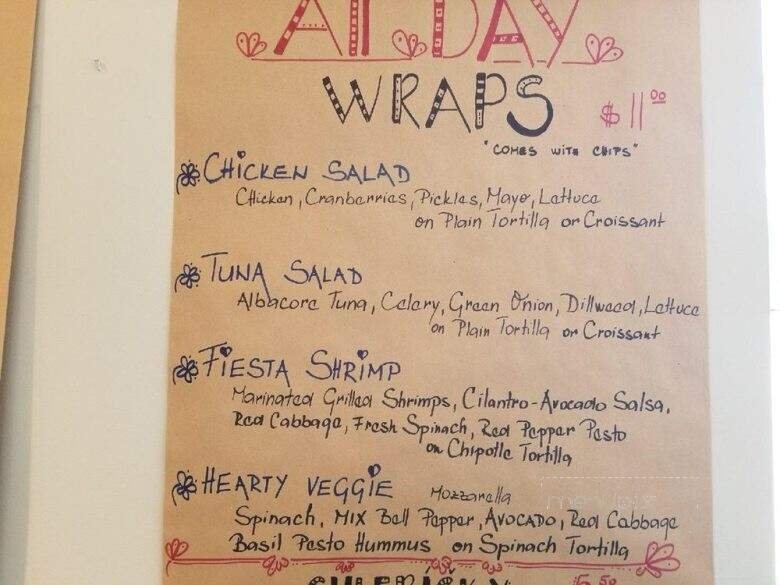 All DAY
WRAPS $11.00
"COMES WITH CHIPS"
CHICKEN SALAD
Chicken, Cranberries, Pickles, Mayo, Lettuce
on Plain Tortilla or Croissant
TUNA SALAD
Albacore Tuna, Celery, Green Onion, Dillweed, Lettuce
on Plain Tortilla or Croissant
FIESTA SHRIMP
Marinated Grilled Shrimps, Cilantro-Avocado Salsa,
Red Cabbage, Fresh Spinach, Red Pepper Pesto
on Chipotle Tortilla
HEARTY VEGGIE Mozzarella
Spinach, MIX Bell Pepper, AVOCADO, Red Cabbage
Basil Pesto Hummus on Spinach Tortilla